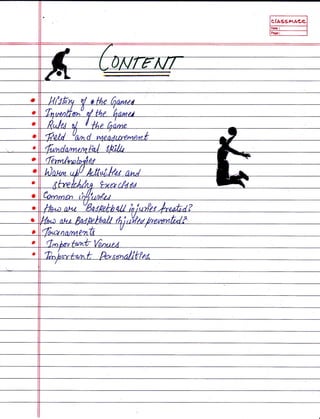 classmate
Date :
Page :
CONTENT
History of the Games
Invention of the Games
Rules of the Game
Field and measurement
Fundamental skills
Terminologies
Warm up Activities and
stretching Exercises
Common injuries
How are Basketball injuries treated?
How are Basketball injuries prevented?
Tournaments
Important Venues
Important Personalities